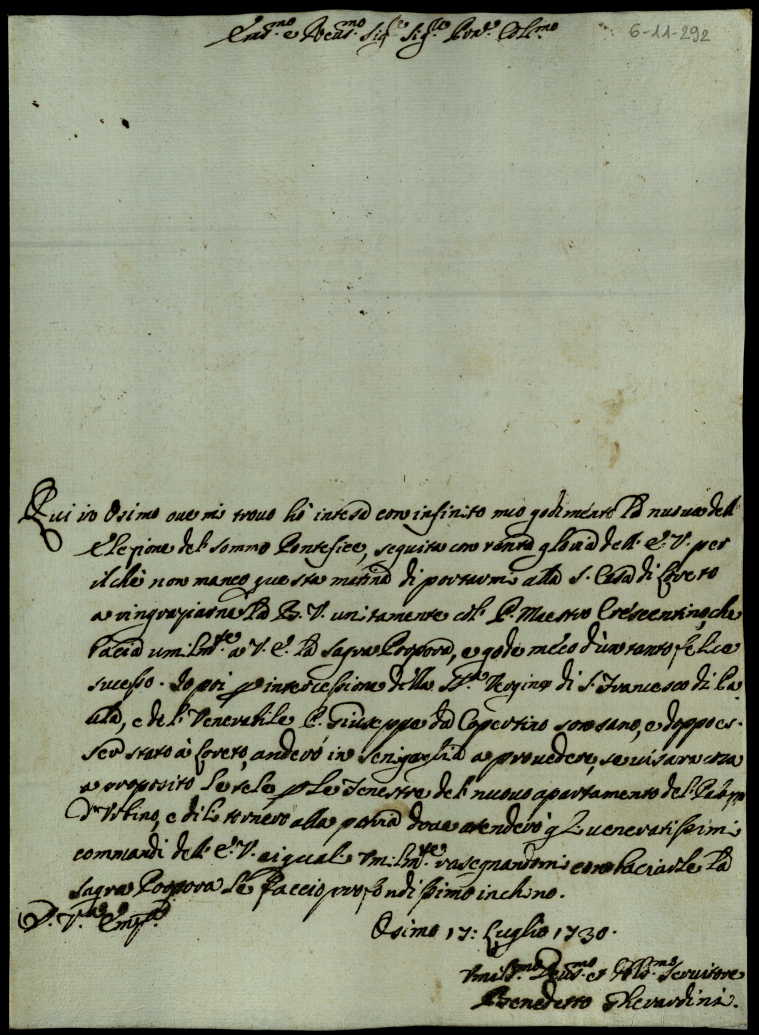 Em.mo e Reu.mo Sig.re Sig.re Pron.e Col.mo
6-11-292
Qui in Osimo oue mi trouo hò inteso con infinito mio godimento la nuoua dell'
Elezione del Sommo Pontefice, seguita con tanta gloria dell'E.V. per
il che non manco questa matina di portarmi alla S. Casa di Loreto
a ringraziarne la B.V. unitamente col P. Maestro Crescentino, che
bacia umilm.te a V.E. la Sagra Porpora, e gode meco d'un tanto felice
sucesso. Io poi per intercessione della SS.ma Vergine di S. Francesco di Pa
ula, e del Venerabile P. Giuseppe da Copertino sono sano, e doppo es-
ser stato à Loreto, anderò in Senigaglia a prouedere, se ui sarà cosa
a proposito le tele per le Fenestre del nuouo apartamento del Palazzo
d'Vrbino, e di lì tornerò alla patria doue atenderò gl'ueneratissimi
commandi dell'E.V. ai quali vmilm.te rasegnandomi con baciarle la
Sagra Porpora le faccio profondissimo inchino.
D. V.ra Em.za
Osimo 17: Luglio 1730.
Vmiliss.mo Deu.mo et Obb.mo Seruitore
Benedetto Gherardini.